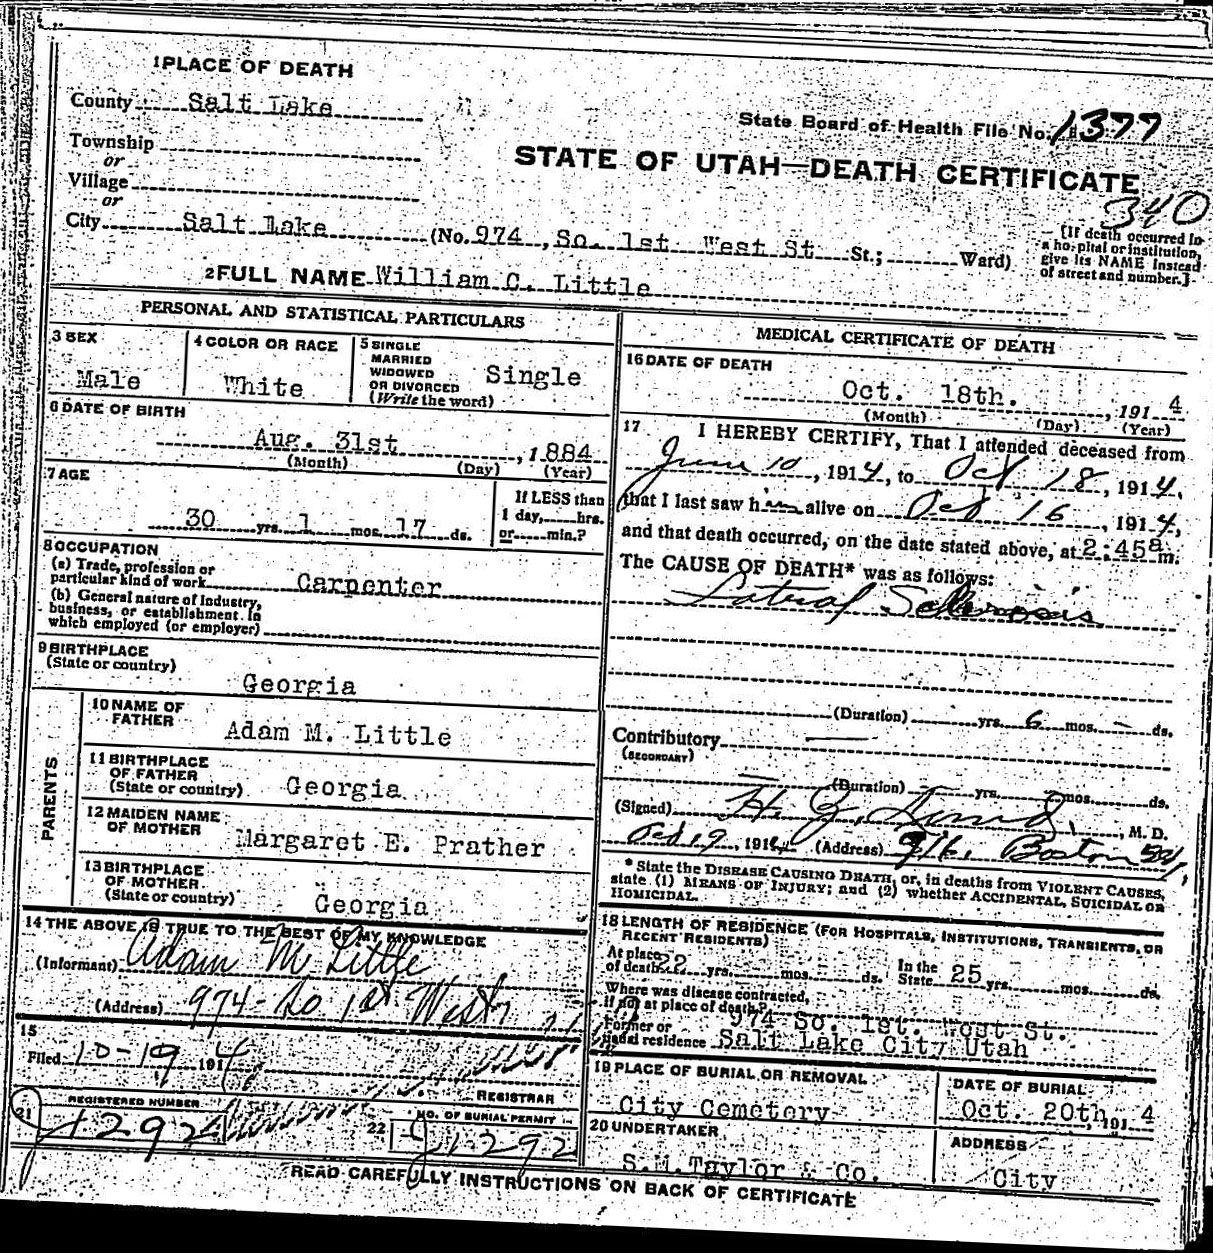 1 PLACE OF DEATH
County Salt Lake
State Board of Health File No. 1377
Township
or
STATE OF UTAH—DEATH CERTIFICATE
Village
or
340
City Salt Lake (No. 974, So. 1st West St St.; Ward)
[If death occurred in a hospital or institution, give its NAME instead of street and number.]
2 FULL NAME William C. Little
PERSONAL AND STATISTICAL PARTICULARS
3 SEX
Male
4 COLOR OR RACE
White
5 SINGLE
MARRIED
WIDOWED
OR DIVORCED
(Write the word)
Single
6 DATE OF BIRTH
Aug. 31st, 1884
(Month) (Day) (Year)
7 AGE
30 yrs. 1 mos. 17 ds.
If LESS than
1 day, hrs.
or min.?
8 OCCUPATION
(a) Trade, profession or
particular kind of work Carpenter
(b) General nature of industry,
business, or establishment in
which employed (or employer)
9 BIRTHPLACE
(State or country)
Georgia
PARENTS
10 NAME OF
FATHER
Adam M. Little
11 BIRTHPLACE
OF FATHER
(State or country) Georgia
12 MAIDEN NAME
OF MOTHER
Margaret E. Prather
13 BIRTHPLACE
OF MOTHER
(State or country) Georgia
14 THE ABOVE IS TRUE TO THE BEST OF MY KNOWLEDGE
(Informant) Adam M Little
(Address) 974- So 1st West
15
Filed 10-19 1914
REGISTRAR
21 REGISTERED NUMBER
J1292
22 NO. OF BURIAL PERMIT
J1292
MEDICAL CERTIFICATE OF DEATH
16 DATE OF DEATH
Oct. 18th., 1914
(Month) (Day) (Year)
17 I HEREBY CERTIFY, That I attended deceased from
June 10, 1914, to Oct 18, 1914,
that I last saw him alive on Oct 16, 1914,
and that death occurred, on the date stated above, at 2:45a m.
The CAUSE OF DEATH* was as follows:
Lateral Sclerosis
(Duration) yrs. 6 mos. — ds.
Contributory —
(SECONDARY)
(Duration) yrs. mos. ds.
(Signed) H. G. , M. D.
Oct 19, 1914 (Address) 916. Boston
* State the DISEASE CAUSING DEATH, or, in deaths from VIOLENT CAUSES,
state (1) MEANS OF INJURY; and (2) whether ACCIDENTAL, SUICIDAL OR
HOMICIDAL.
18 LENGTH OF RESIDENCE (FOR HOSPITALS, INSTITUTIONS, TRANSIENTS, OR
RECENT RESIDENTS)
At place
of death 22 yrs. mos. ds. In the State 25 yrs. mos. ds.
Where was disease contracted,
if not at place of death? 974 So. 1st. West St.
Former or
usual residence Salt Lake City Utah
19 PLACE OF BURIAL OR REMOVAL
City Cemetery
DATE OF BURIAL
Oct. 20th, 1914
20 UNDERTAKER
S.M. Taylor & Co.
ADDRESS
City
READ CAREFULLY INSTRUCTIONS ON BACK OF CERTIFICATE